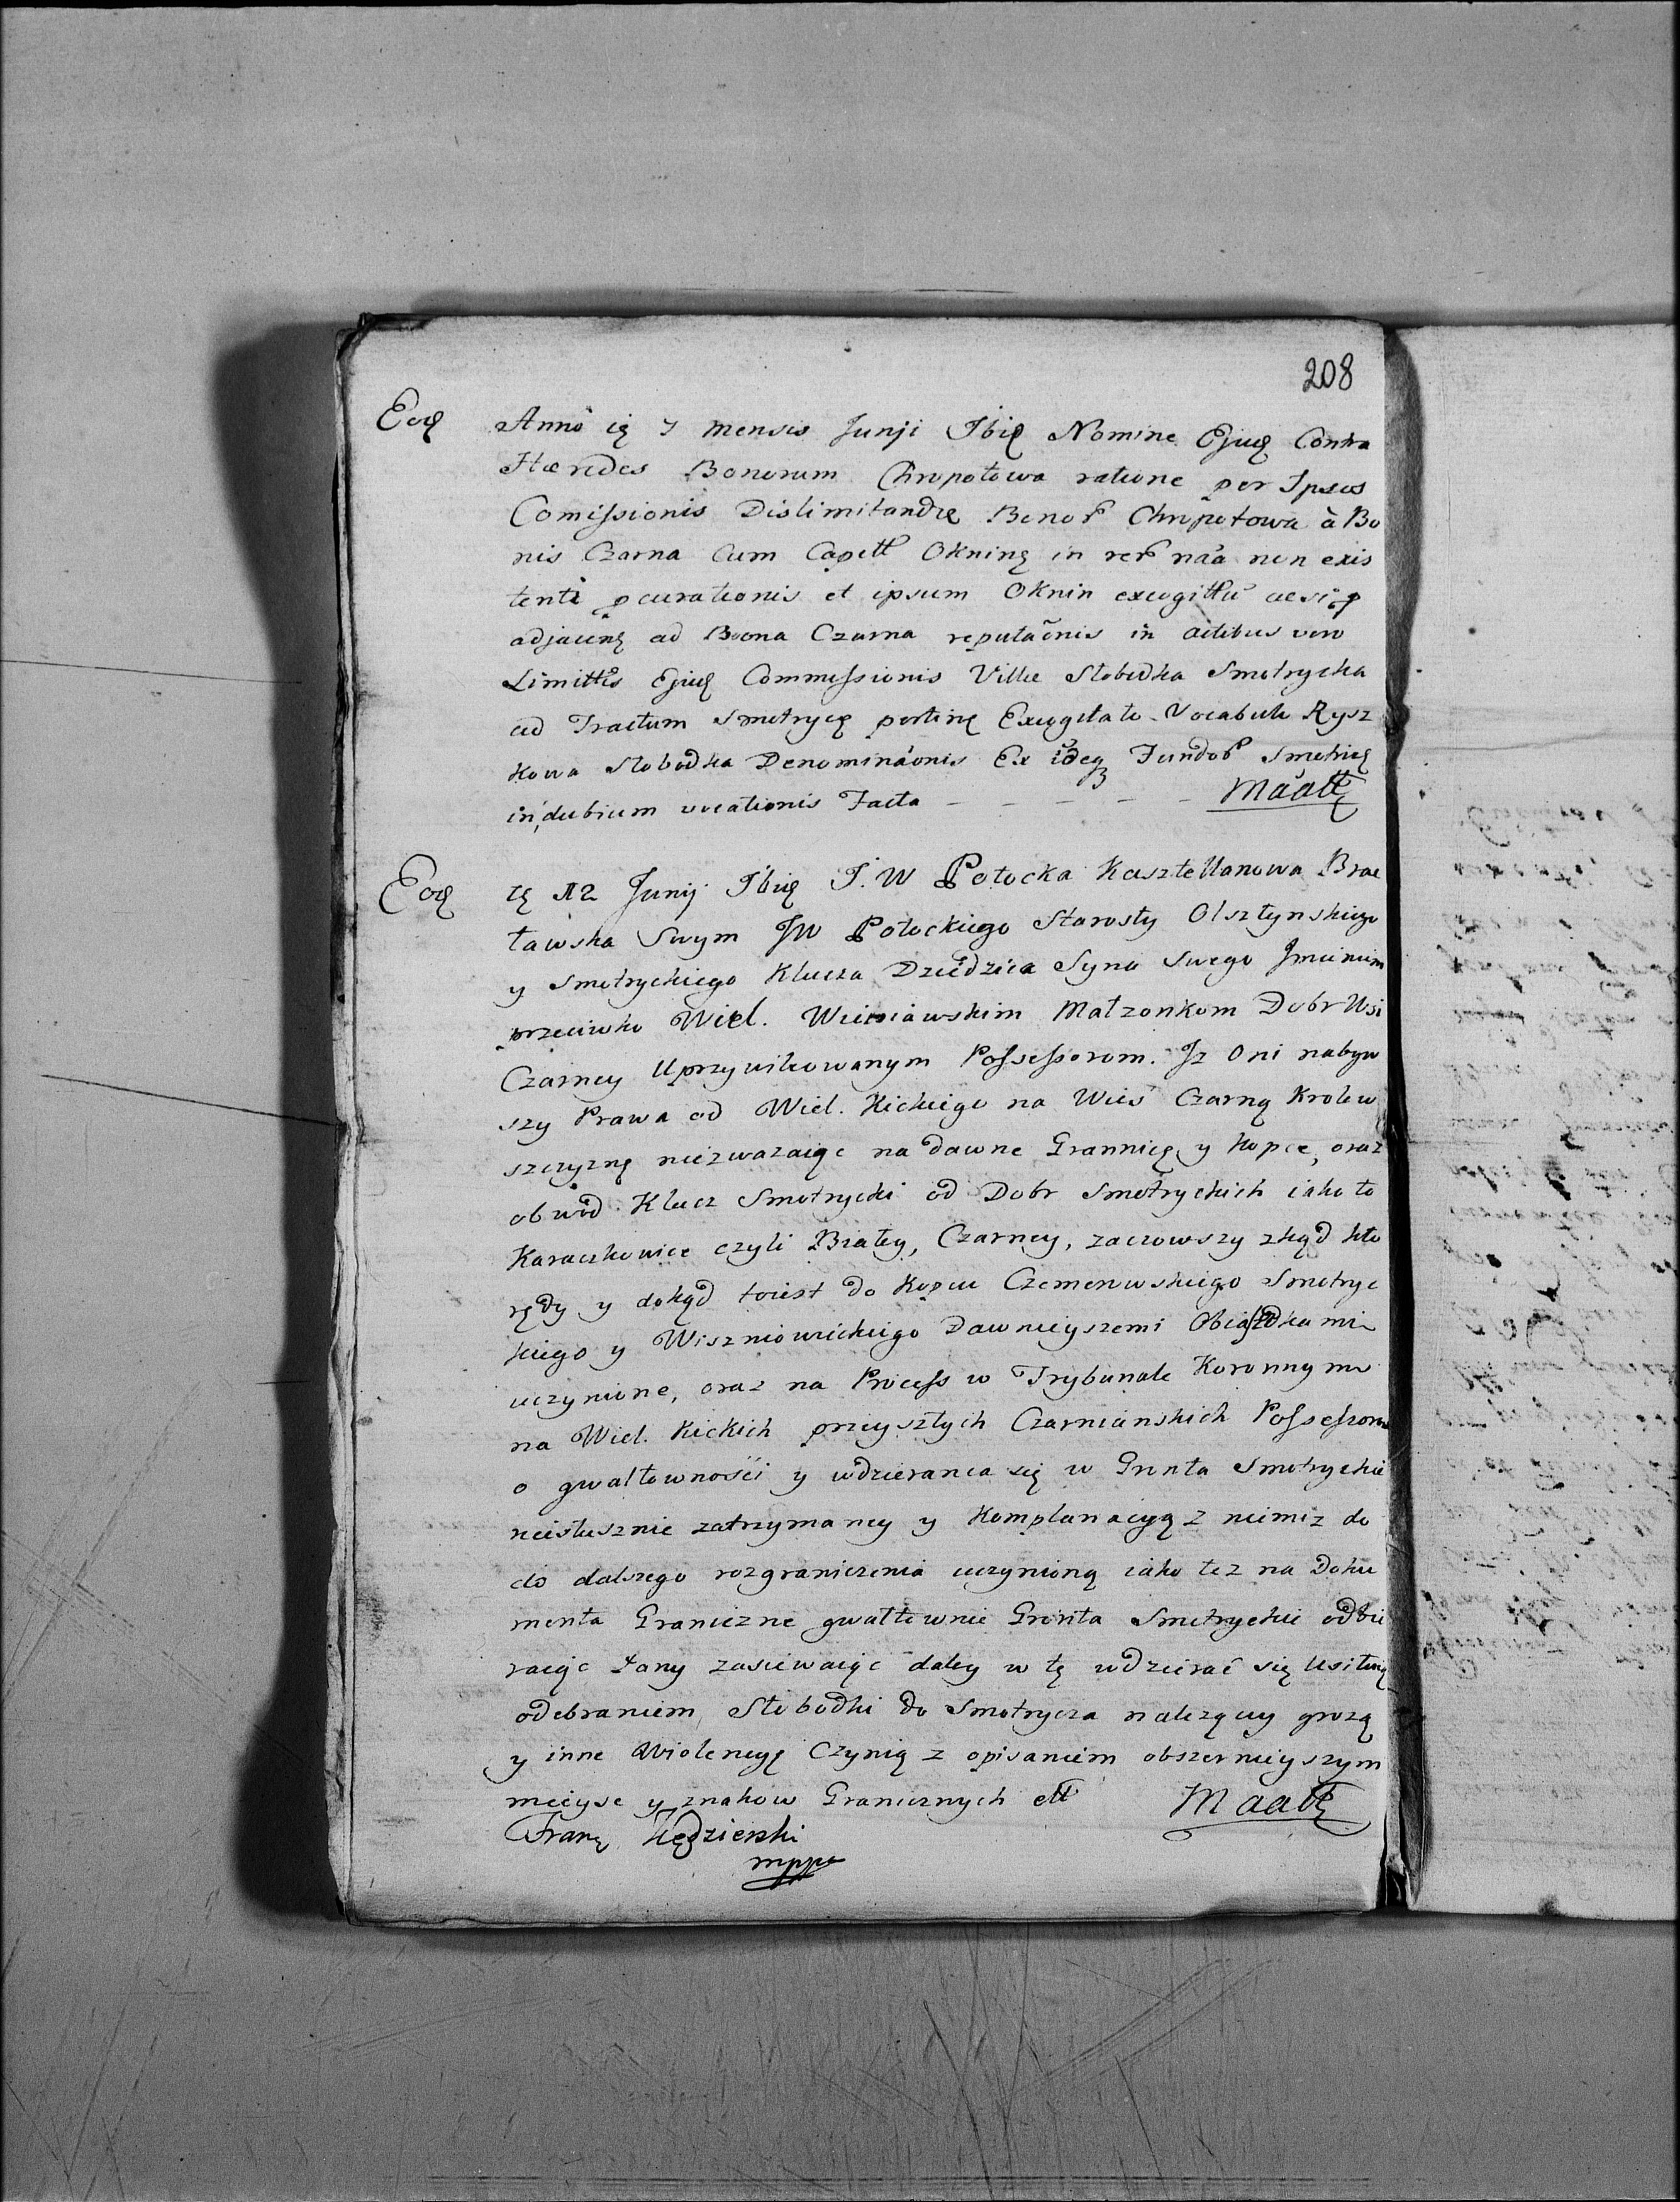 208
Eod Anno ię 7 Mensis Junji Ibię Nomine Ejuę Contra
Hæredes Bonorum Chropotowa ratione per Ipsos
Comissionis Dislimitandæ Bonor Chropotowa à Bo
nis Czarna Cum Capell Okninę in rer naa non exis
tenti pcurationis et ipsum Oknin excogitu
adjacenę ad Boona Czarna reputaonis in actibus vero
Limittis Ejuę Commissionis Villæ Slobodka Smotrycka
ad Tractum Smotrycę pertinę Excogitato Vocabulo Rysz
kowa Slobodka Denominaonis Ex Fundor Smotrię
in dubium vocationis Facta – – – – – Maatę
Eodę ię 12 Junij Ibię J. W Potocka Kasztellanowa Brac
ławska Swym JW Potockiego Starosty Olsztynskiego
y Smotryckiego Klucza Dziedzica Syna Swego Jmieniem
przeciwko Wiel. Wisniawskim Małzonkom Dobr Wsi
Czarney Uprzywileowanym Possessorom. Iz Oni nabyw
szy Prawa od Wiel. Kickiego na Wieś Czarną Krolew
szczyznę niezwazaiąc na dawne Grannicę y kopce, oraz
obwod Klucz Smotrycki od Dobr Smotryckich iako to
Karaczkowice czyli Białey, Czarney, zacząwszy zkąd kto
rędy y dokąd toiest do Kopca Czemerowskiego Smotryc
kiego y Wiszniowieckiego Dawnieyszemi Obiazdkami
uczynione, oraz na Process w Trybunale Koronnym
na Wiel. Kickich przyszłych Czarnianskich Possessorow
o gwałtownośći y wdzierania się w Gronta Smotryckie
niesłusznie zatrzymaney y Komplanacyą z niemiz do
do dalszego rozgraniczenia uczynioną iako tez na Doku
menta Graniczne gwałtownie Gronta Smotryckie odbie
raiąc Łany zasiewaiąc daley w tę wdzierać się usiłuią
odebraniem Słobodki do Smotrycza nalezącey grozą
y inne Wiolencyę Czynią z opisaniem obszernieyszym
mieysc y znakow Granicznych ett Maatę
Franę Kędzierski
mppa